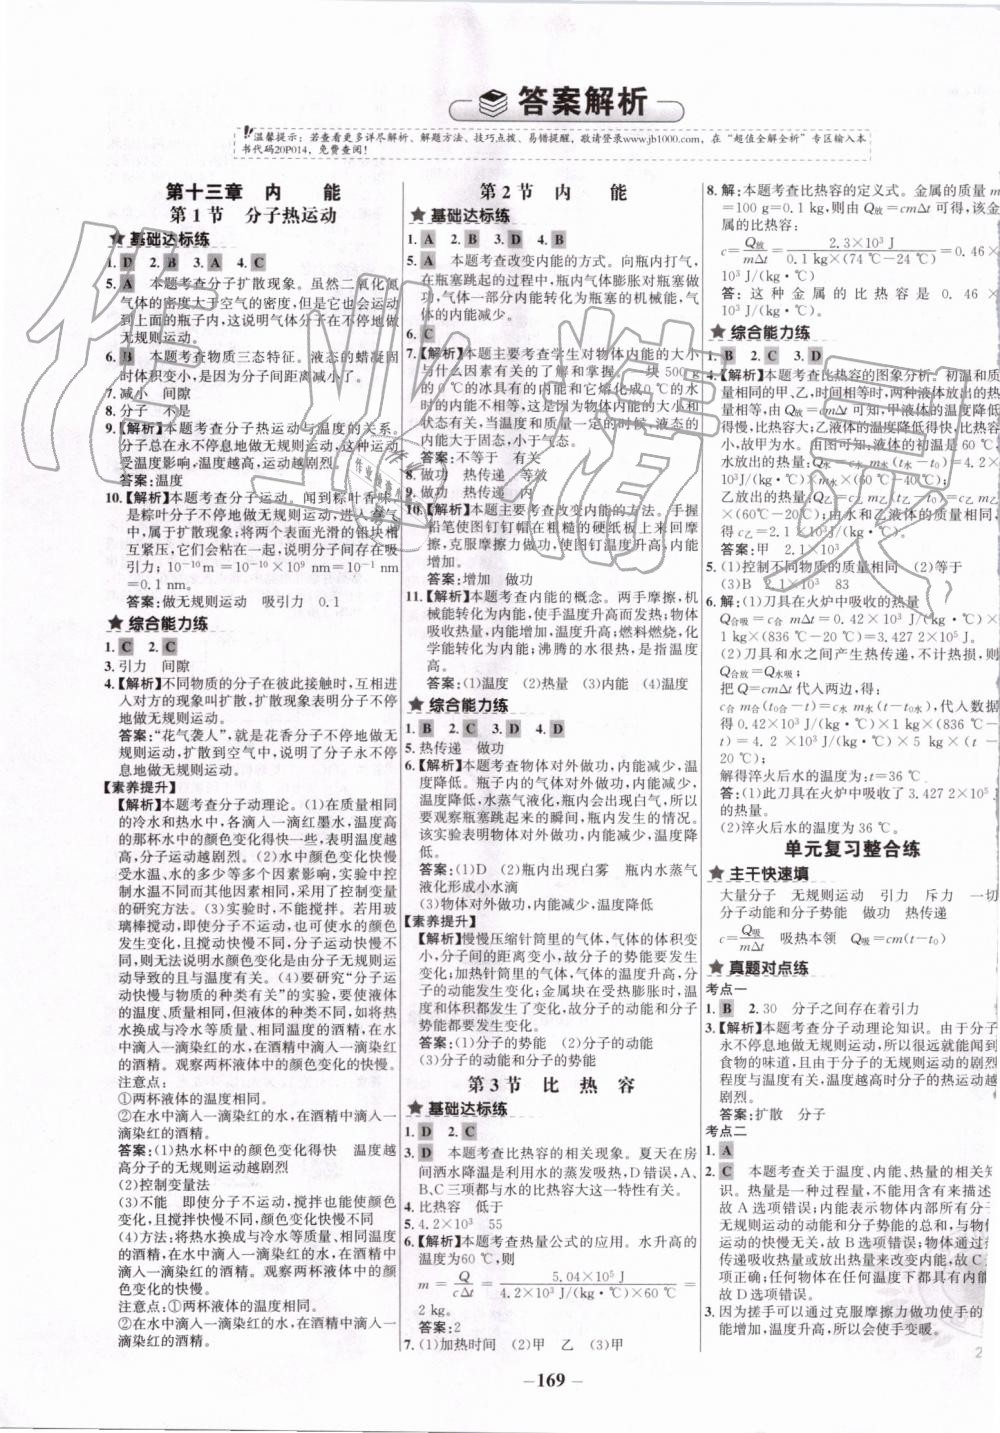 答案解析
温馨提示:若查看更多详尽解析、解题方法、技巧点拨、易错提醒,敬请登录www.jb1000.com,在“超值全解全析”专区输入本
书代码20P014,免费查阅!
第十三章 内 能
第1节 分子热运动
★基础达标练
1. D 2. B 3. A 4. C
5. A 本题考查分子扩散现象。虽然二氧化氮
气体的密度大于空气的密度,但是它也会运动
到上面的瓶子内,这说明气体分子在不停地做
无规则运动。
6. B 本题考查物质三态特征。液态的蜡凝固
时体积变小,是因为分子间距离减小。
7. 减小 间隙
8. 分子 不是
9.【解析】本题考查分子热运动与温度的关系。
分子总在永不停息地做无规则运动,这种运动
受温度影响,温度越高,运动越剧烈。
答案:温度
10.【解析】本题考查分子运动。闻到粽叶香味,
是粽叶分子不停地做无规则运动,进入鼻子
中,属于扩散现象;将两个表面光滑的铅块相
互紧压,它们会粘在一起,说明分子间存在吸
引力;10⁻¹⁰m=10⁻¹⁰×10⁹ nm=10⁻¹ nm
=0.1 nm。
答案:做无规则运动 吸引力 0.1
★综合能力练
1. C 2. C
3. 引力 间隙
4.【解析】不同物质的分子在彼此接触时,互相进
入对方的现象叫扩散,扩散现象表明分子不停
地做无规则运动。
答案:“花气袭人”,就是花香分子不停地做无
规则运动,扩散到空气中,说明了分子永不停
息地做无规则运动。
【素养提升】
【解析】本题考查分子动理论。(1)在质量相同
的冷水和热水中,各滴入一滴红墨水,温度高
的那杯水中的颜色变化得快一些,表明温度越
高,分子运动越剧烈。(2)水中颜色变化快慢
受水温、水的多少等多个因素影响,实验中控
制水温不同而其他因素相同,采用了控制变量
的研究方法。(3)实验时,不能搅拌。若用玻
璃棒搅动,即使分子不运动,也可使水的颜色
发生变化,且引起的颜色变化会比扩散更快,
则无法说明颜色变化是由分子无规则运
动导致的且与温度有关。(4)要研究“分子运
动快慢与物质的种类有关”的实验,要使液体
的温度、质量相同,但液体的种类不同,如将热
水换成与冷水等质量、相同温度的酒精,在水
中滴入一滴染红的水,在酒精中滴入一滴染红
的酒精。观察两杯液体中的颜色变化情况。
注意点:
①两杯液体的温度相同。
②在水中滴入一滴染红的水,在酒精中滴入一
滴染红的酒精。
答案:(1)热水杯中的颜色变化得快 温度越
高分子的无规则运动越剧烈
(2)控制变量法
(3)不能 即使分子不运动,搅拌也能使颜色
变化,且引起的颜色变化比扩散更快
(4)方法:将热水换成与冷水等质量、相同温度
的酒精,在水中滴入一滴染红的水,在酒精中
滴入一滴染红的酒精。观察两杯液体中的颜
色变化情况。
注意点:①两杯液体的温度相同。
②在水中滴入一滴染红的水,在酒精中滴入一
滴染红的酒精。
第2节 内 能
★基础达标练
1. A 2. B 3. D 4. B
5. A 本题考查改变内能的方式。向瓶内打气,
在瓶塞跳起的过程中,瓶内气体膨胀对瓶塞做
功,气体一部分内能转化为瓶塞的机械能,气
体的内能减少。
6. C
7.【解析】本题主要考查学生对物体内能的大小
与什么因素有关的了解和掌握。一块 500 g
的 0 ℃的冰具有的内能和它熔化成 0 ℃的水
时的内能不相等,这是因为物体的内能大小和
状态有关,当温度和质量一定的时候,液态的
内能大于固态,小于气态。
答案:不等于 有关
8. 做功 热传递 等效
9. 做功 热传递 内
10.【解析】本题考查改变内能的方法。手握
铅笔使图钉钉帽在粗糙的硬纸板上来回摩
擦,克服摩擦力做功,使图钉温度升高,内能
增加。
答案:增加 做功
11.【解析】本题考查内能的概念。两手摩擦,机
械能转化为内能,使手温度升高而发热;物体
吸收热量,内能增加,温度升高;燃料燃烧,化
学能转化为内能;沸腾的水很热,是指温度
高。
答案:(1)温度 (2)热量 (3)内能 (4)温度
★综合能力练
1. B 2. C 3. D 4. D
5. 热传递 做功
6.【解析】本题考查物体对外做功,内能减少,温
度降低。瓶子内的气体对外做功,内能减少,
温度降低,水蒸气液化,瓶内会出现白气,所以
要观察瓶塞跳起来的瞬间,瓶内发生的情况。
该实验表明物体对外做功,内能减少。
答案:(1)D (2)瓶内出现白雾 瓶内水蒸气
液化形成小水滴
(3)物体对外做功,内能减少,温度降低
【素养提升】
【解析】慢慢压缩针筒里的气体,气体的体积变
小,分子间的距离变小,故分子的势能要发生
变化;加热针筒里的气体,气体的温度升高,分
子的动能发生变化;金属块在受热膨胀时,温
度和体积都发生了变化,故分子的动能和分子
势能都要发生变化。
答案:(1)分子的势能 (2)分子的动能
(3)分子的动能和分子的势能
第3节 比 热 容
★基础达标练
1. D 2. C
3. D 本题考查比热容的相关现象。夏天在房
间洒水降温是利用水的蒸发吸热,D错误,A、
B、C三项都与水的比热容大这一特性有关。
4. 比热容 低于
5. 4.2×10³ 55
6.【解析】本题考查热量公式的应用。水升高的
温度为60 ℃,则
m = Q/(cΔt) = 5.04×10⁵ J/(4.2×10³ J/(kg·℃)×60 ℃) =
2 kg。
答案:2
7. (1)加热时间 (2)甲 乙 (3)甲
8. 解:本题考查比热容的定义式。金属的质量m
=100 g=0.1 kg,则由 Q放=cmΔt 可得,该金
属的比热容:
c=Q放/(mΔt)=2.3×10³ J/(0.1 kg×(74 ℃-24 ℃))=0.46×
10³ J/(kg·℃)
答:这种金属的比热容是 0.46×
10³ J/(kg·℃)。
★综合能力练
1. B 2. C 3. D
4.【解析】本题考查比热容的图象分析。初温和质
量相同的甲、乙,时间相等时,两种液体放出的热
量相等,由 Q放=cmΔt 可知,甲液体的温度降低
得慢,比热容大,乙液体的温度降低得快,比热容
小,故甲为水。由图可知,液体的初温是60 ℃,
水放出的热量:Q水=c水m水(t水-t0)=4.2×
10³J/(kg·℃)×m水×(60 ℃-40℃);
乙放出的热量:Q乙=c乙m乙(t乙-t0)=c乙m乙
×(60℃-20℃);由水和乙液体的质量相同,
得 c乙=2.1×10³ J/(kg·℃)。
答案:甲 2.1×10³
5. (1)控制不同物质的质量相同 (2)等于
(3)B 2.1×10³ 83
6. 解:(1)刀具在火炉中吸收的热量
Q合吸=c合m合Δt=0.42×10³ J/(kg·℃)×
1 kg×(836 ℃-20 ℃)=3.427 2×10⁵ J。
(2)刀具和水之间产生热传递,不计热损,则
Q合放=Q水吸;
把 Q=cmΔt 代入两边,得:
c合m合(t0合-t)=c水m水(t-t0水),代入数据
得 0.42×10³J/(kg·℃)×1 kg×(836 ℃-
t)=4.2×10³J/(kg·℃)×5 kg×(t-
20 ℃);
解得淬火后水的温度为:t=36 ℃。
答:(1)此刀具在火炉中吸收了 3.427 2×10⁵J
的热量。
(2)淬火后水的温度为 36 ℃。
单元复习整合练
★主干快速填
大量分子 无规则运动 引力 斥力 一切
分子动能和分子势能 做功 热传递
c=Q吸/(mΔt) 吸热本领 Q吸=cm(t-t0)
★真题对点练
考点一
1. B 2. 30 分子之间存在着引力
3.【解析】本题考查分子动理论知识。由于分子
永不停息地做无规则运动,所以很远就能闻到
食物的味道,且由于分子的无规则运动的剧烈
程度与温度有关,温度越高时分子的热运动越
剧烈。
答案:扩散 分子
考点二
1. A
2. C 本题考查关于温度、内能、热量的相关知
识。热量是一个过程量,不能用含有来描述,
故 A 选项错误;内能表示物体内部所有分子
无规则运动的动能和分子势能的总和,与物体
运动的快慢无关,故 B 选项错误;物体通过热
传递吸收热量或放出热量来改变内能大小,故 C 选
项正确;任何物体在任何温度下都具有内能,
故 D 选项错误。
3. 因为搓手可以通过克服摩擦力做功使手的内
能增加,温度升高,所以会有手发暖的感觉。
— 169 —